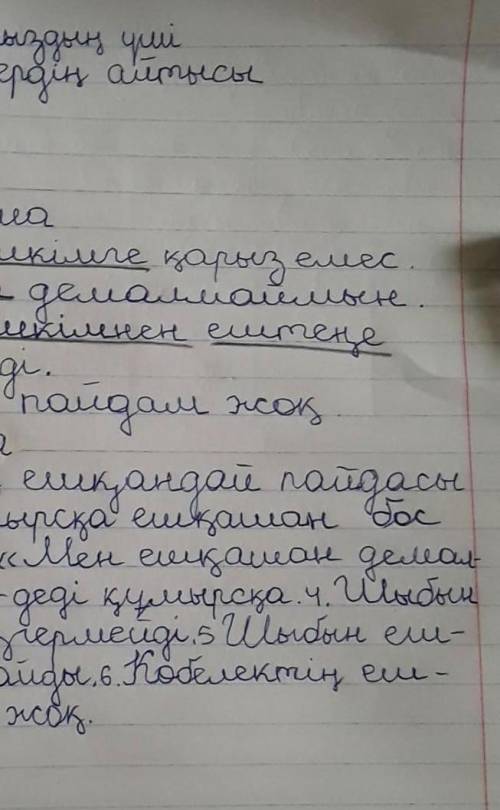 ыздың үші
ердің айтысы
ма
шкімге қарыз емес.
демалмаймын.
шкімнен ештеңе
ді.
пайдам жоқ
ешқандай пайдасы
ырсқа ешқашан бос
«Мен ешқашан демал-
-деді құмырсқа. 4. Шыбын
гермейді. 5 Шыбын еш-
айды. 6. Көбелектің еш-
жоқ.